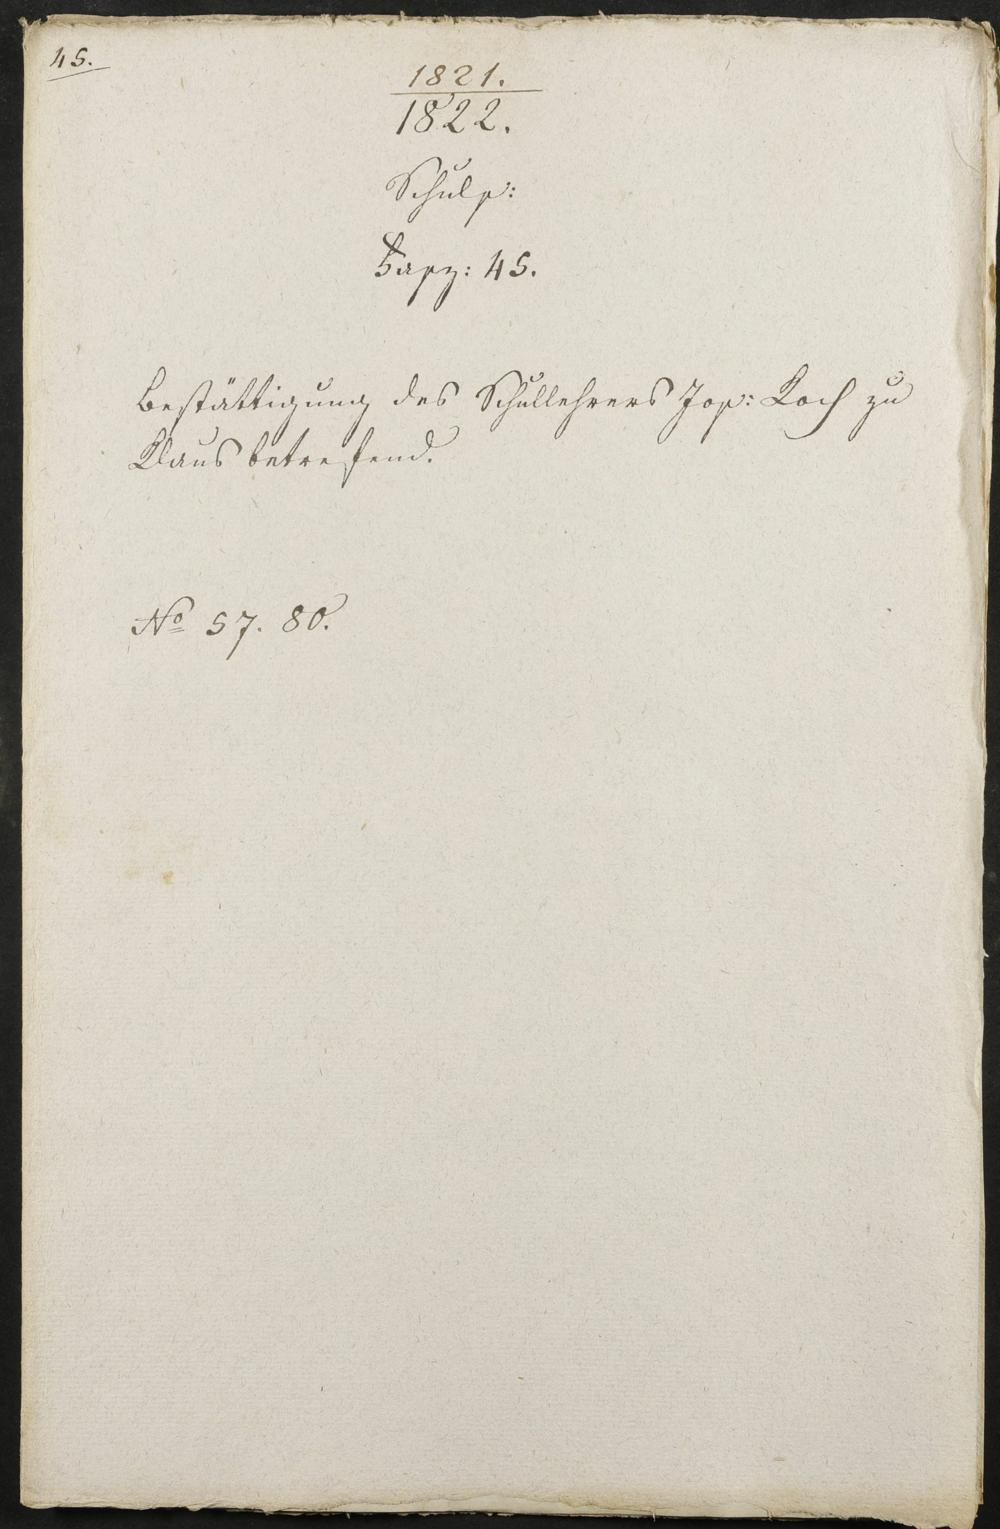 45.
1821.
1822.
Schuls:
Fasz: 45.
Bestättigung des Schullehrers Jos: Koch zu
Klaus betrefend.
No 57. 80.